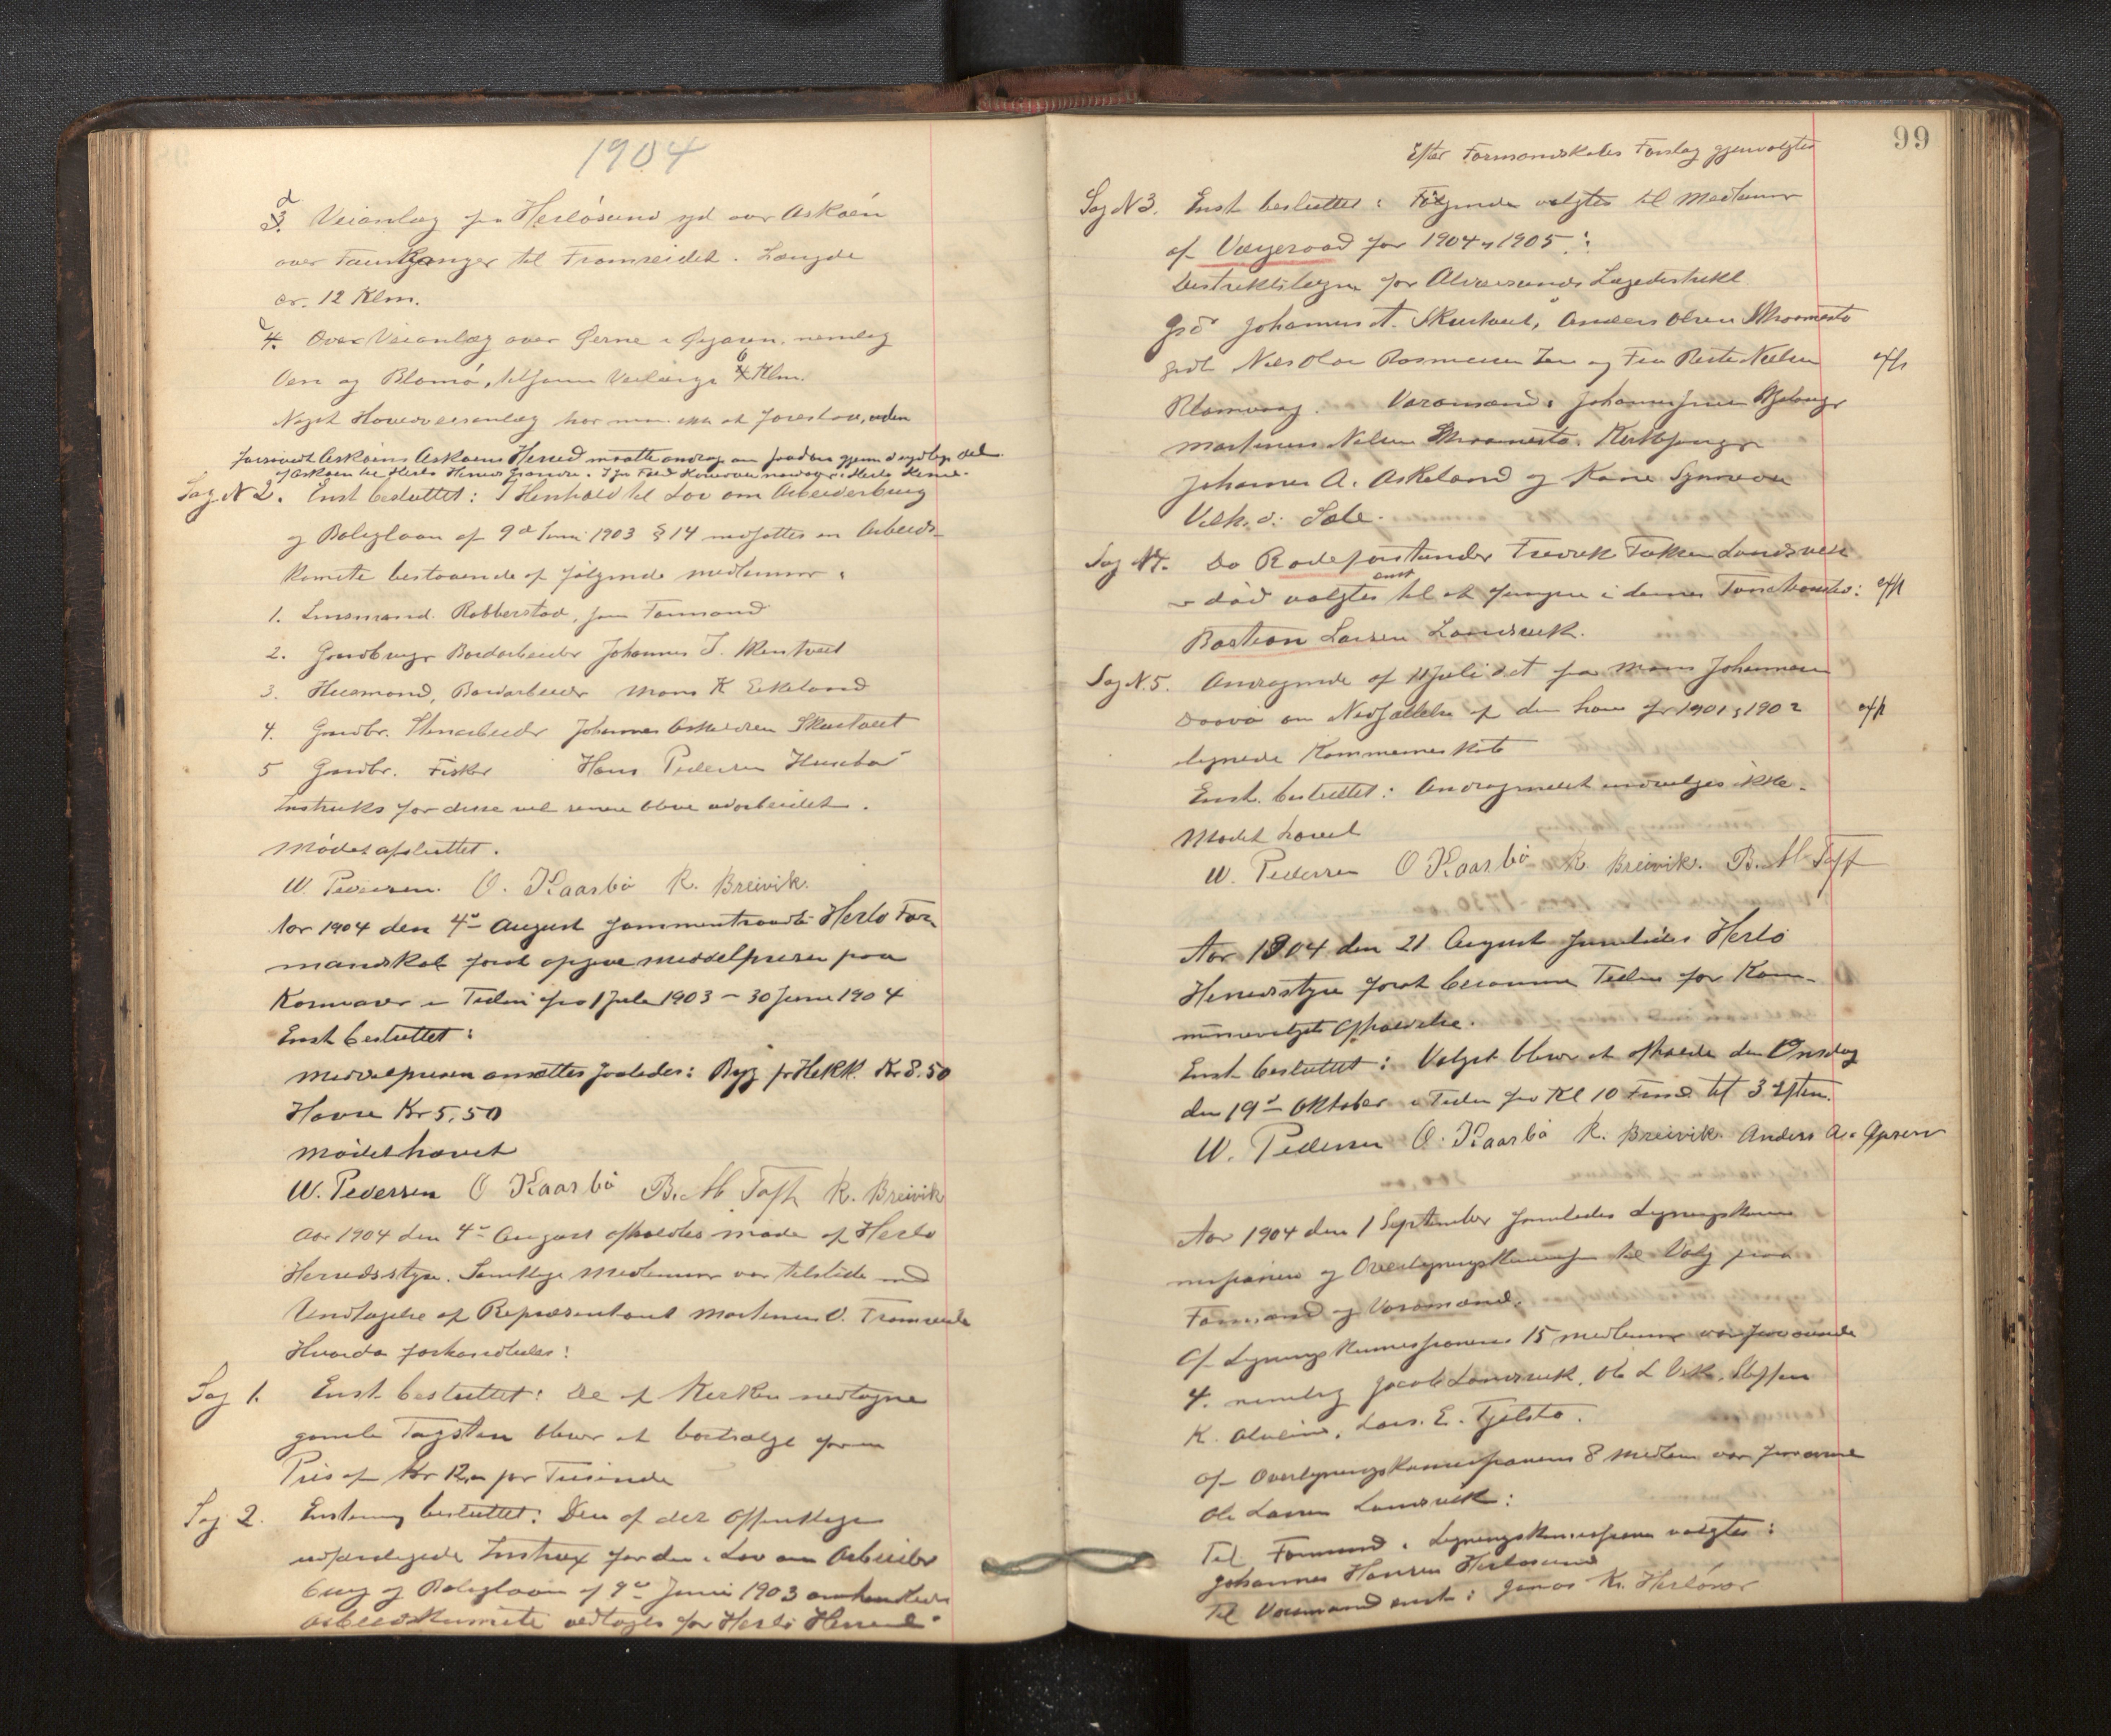 1904
d
3. Veianlæg fra Herløsund syd over Askøen
over Fauskanger til Framreidet. Længde
ca. 12 Klm.
4. Over Veianlæg over Øerne i Øygaren, nemlig
Oen og Blomø, tilsam Veilængde 6 Klm.
Noget Hovedveianlæg har man ikke at foreslaa, uden
forsaavidt Askøens Herred maatte andrage om gjennem sydlige del
af Askøen til Herlø Herreds Grændse.
Sag N 2. Enst besluttet: I Henhold til Lov om Arbeiderbrug
og Boliglaan af 9de Juni 1903 § 14 nedsattes en Arbeids-
komite bestaaende af følgende medlemmer:
1. Lensmand Rabberstad, som Formand
2. Gaardbruger Bordarbeider Johannes J. Mentveit
3. Husmand, Bordarbeider Mons K Eikeland
4. Gaardbr. Stenarbeider Johannes Askildsen Skurtveit
5 Gaardbr. Fisker Hans Pedersen Husebø
Instruks for disse vil senere blive udarbeidet.
Mødet afsluttet.
W. Pedersen. O. Kaarbø R. Breivik.
Aar 1904 den 4de August sammentraadte Herlø For
mandskab forat opgive middelpriser paa
Kornvarer i Tiden fra 1 Juli 1903 – 30 Juni 1904
Enst besluttet:
Middelprisen ansættes saaledes: Byg pr Hekk. Kr 8.50
Havre Kr 5,50
Mødet hævet
W. Pedersen O Kaarbø B. M Toft R. Breivik
Aar 1904 den 4de August afholdtes møde af Herlø
Herredsstyre. Samtlige Medlemmer var tilstede med
Undtagelse af Repræsentant Martinus O. Framreide
Hvorda forhandledes:
Sag 1. Enst besluttet: De af Kirken nedtagne
gamle Tagsten bliver at bortsælge for en
Pris af Kr 12,00 per Tusinde
Sag 2. Enstemig besluttet: Den af det offentlige
udfærdigede Instrux for den i Lov om Arbeider
brug og Boliglaan af 9de Juni 1903 omhandlede
Arbeidskomite vedtages for Herlø Herred.
99
Efter Formandskabets Forslag gjenvalgtes
Sag N 3. Enst besluttet: Følgende valgtes til Medlemmer
af Værgeraad for 1904 og 1905:
Distriktslægen for Alversunds Lægedistrikt
Johannes A. Skurtveit, Anders Olsen
Nils Olai Rasmussen og Fru Berte Nilsen exp
Blomvaag. Varamænd: Johannes
Martinus Nilsen
Johannes A. Askeland og Kari
Vilh. d: Sæle.
Sag N4. Da Rodeforstander Fredrik Landsvik
er død valgtes enst til at fungere i dennes Functionstid: exp
Bastian Larsen Landsvik.
Sag N. 5. Andragende af 11 Juli d.A fra Mons Johannesen
om Nedsættelse af den ham for 1901 og 1902 exp
lignede Kommuneskat
Enst. besluttet: Andragendet indvilges ikke.
Mødet hævet
W. Pedersen O Kaarbø R. Breivik. B. M Toft
Aar 1904 den 21 August samledes Herlø
Herredsstyre forat beramme Tiden for Kom-
munevalgets Afholdelse.
Enst besluttet: Valget bliver at afholde den Onsdag
den 19de Oktober i Tiden fra Kl 10 Form til 3 Eftm.
W. Pedersen O. Kaarbø R. Breivik Anders A. Øpsen
Aar 1904 den 1 September samledes Ligningskom
missionen og Overligningskommissionen til Valg paa
Formand og Varamand.
Af Ligningskommissionens 15 medlemmer var fraværende
4. nemlig Jacob Landsvik, Ole L Vik, Steffen
K. Alveim, Lars. E. Tjelstø.
Af Overligningskommissionens 8 Medlem var fraværende
Ole Larsen Landsvik:
Til Formand i Ligningskommissionen valgtes:
Johannes Hansen Herløsund
Til Varamand enst: Jonas Kr. Herløvær